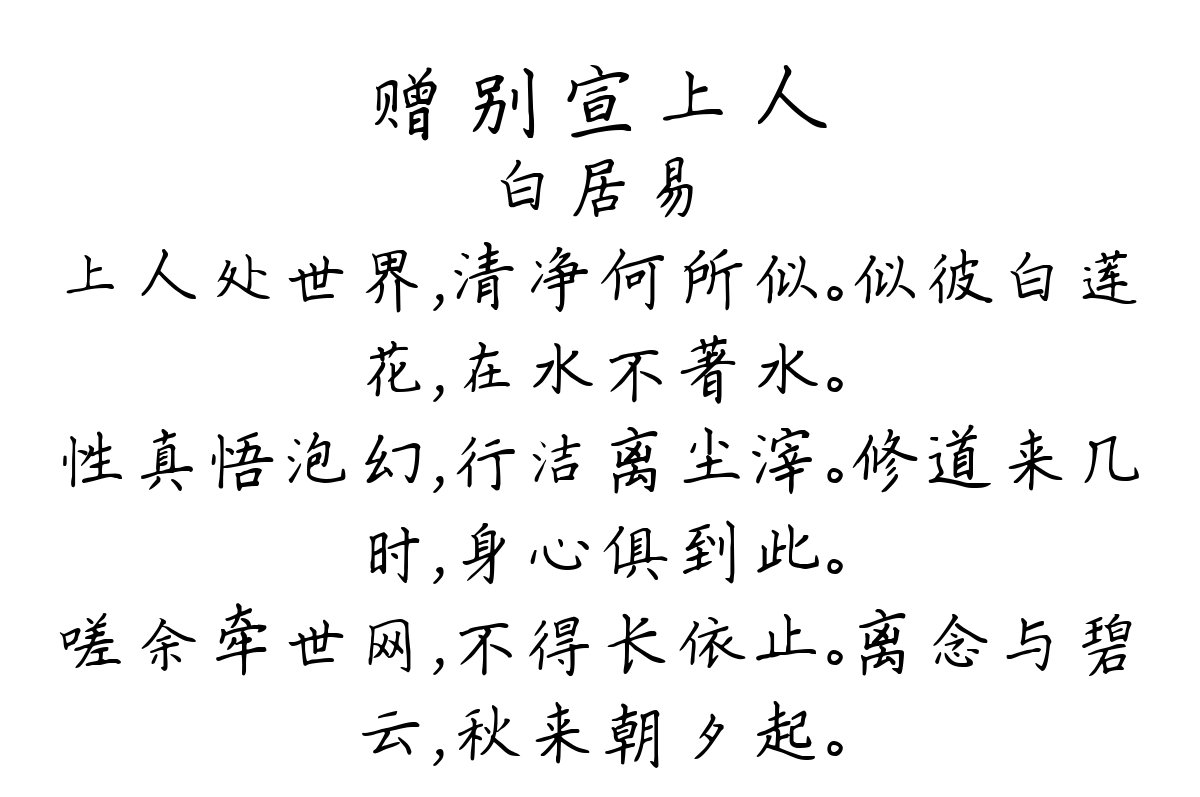 赠别宣上人
白居易
上人处世界,清净何所似。似彼白莲
花,在水不著水。
性真悟泡幻,行洁离尘滓。修道来几
时,身心俱到此。
嗟余牵世网,不得长依止。离念与碧
云,秋来朝夕起。